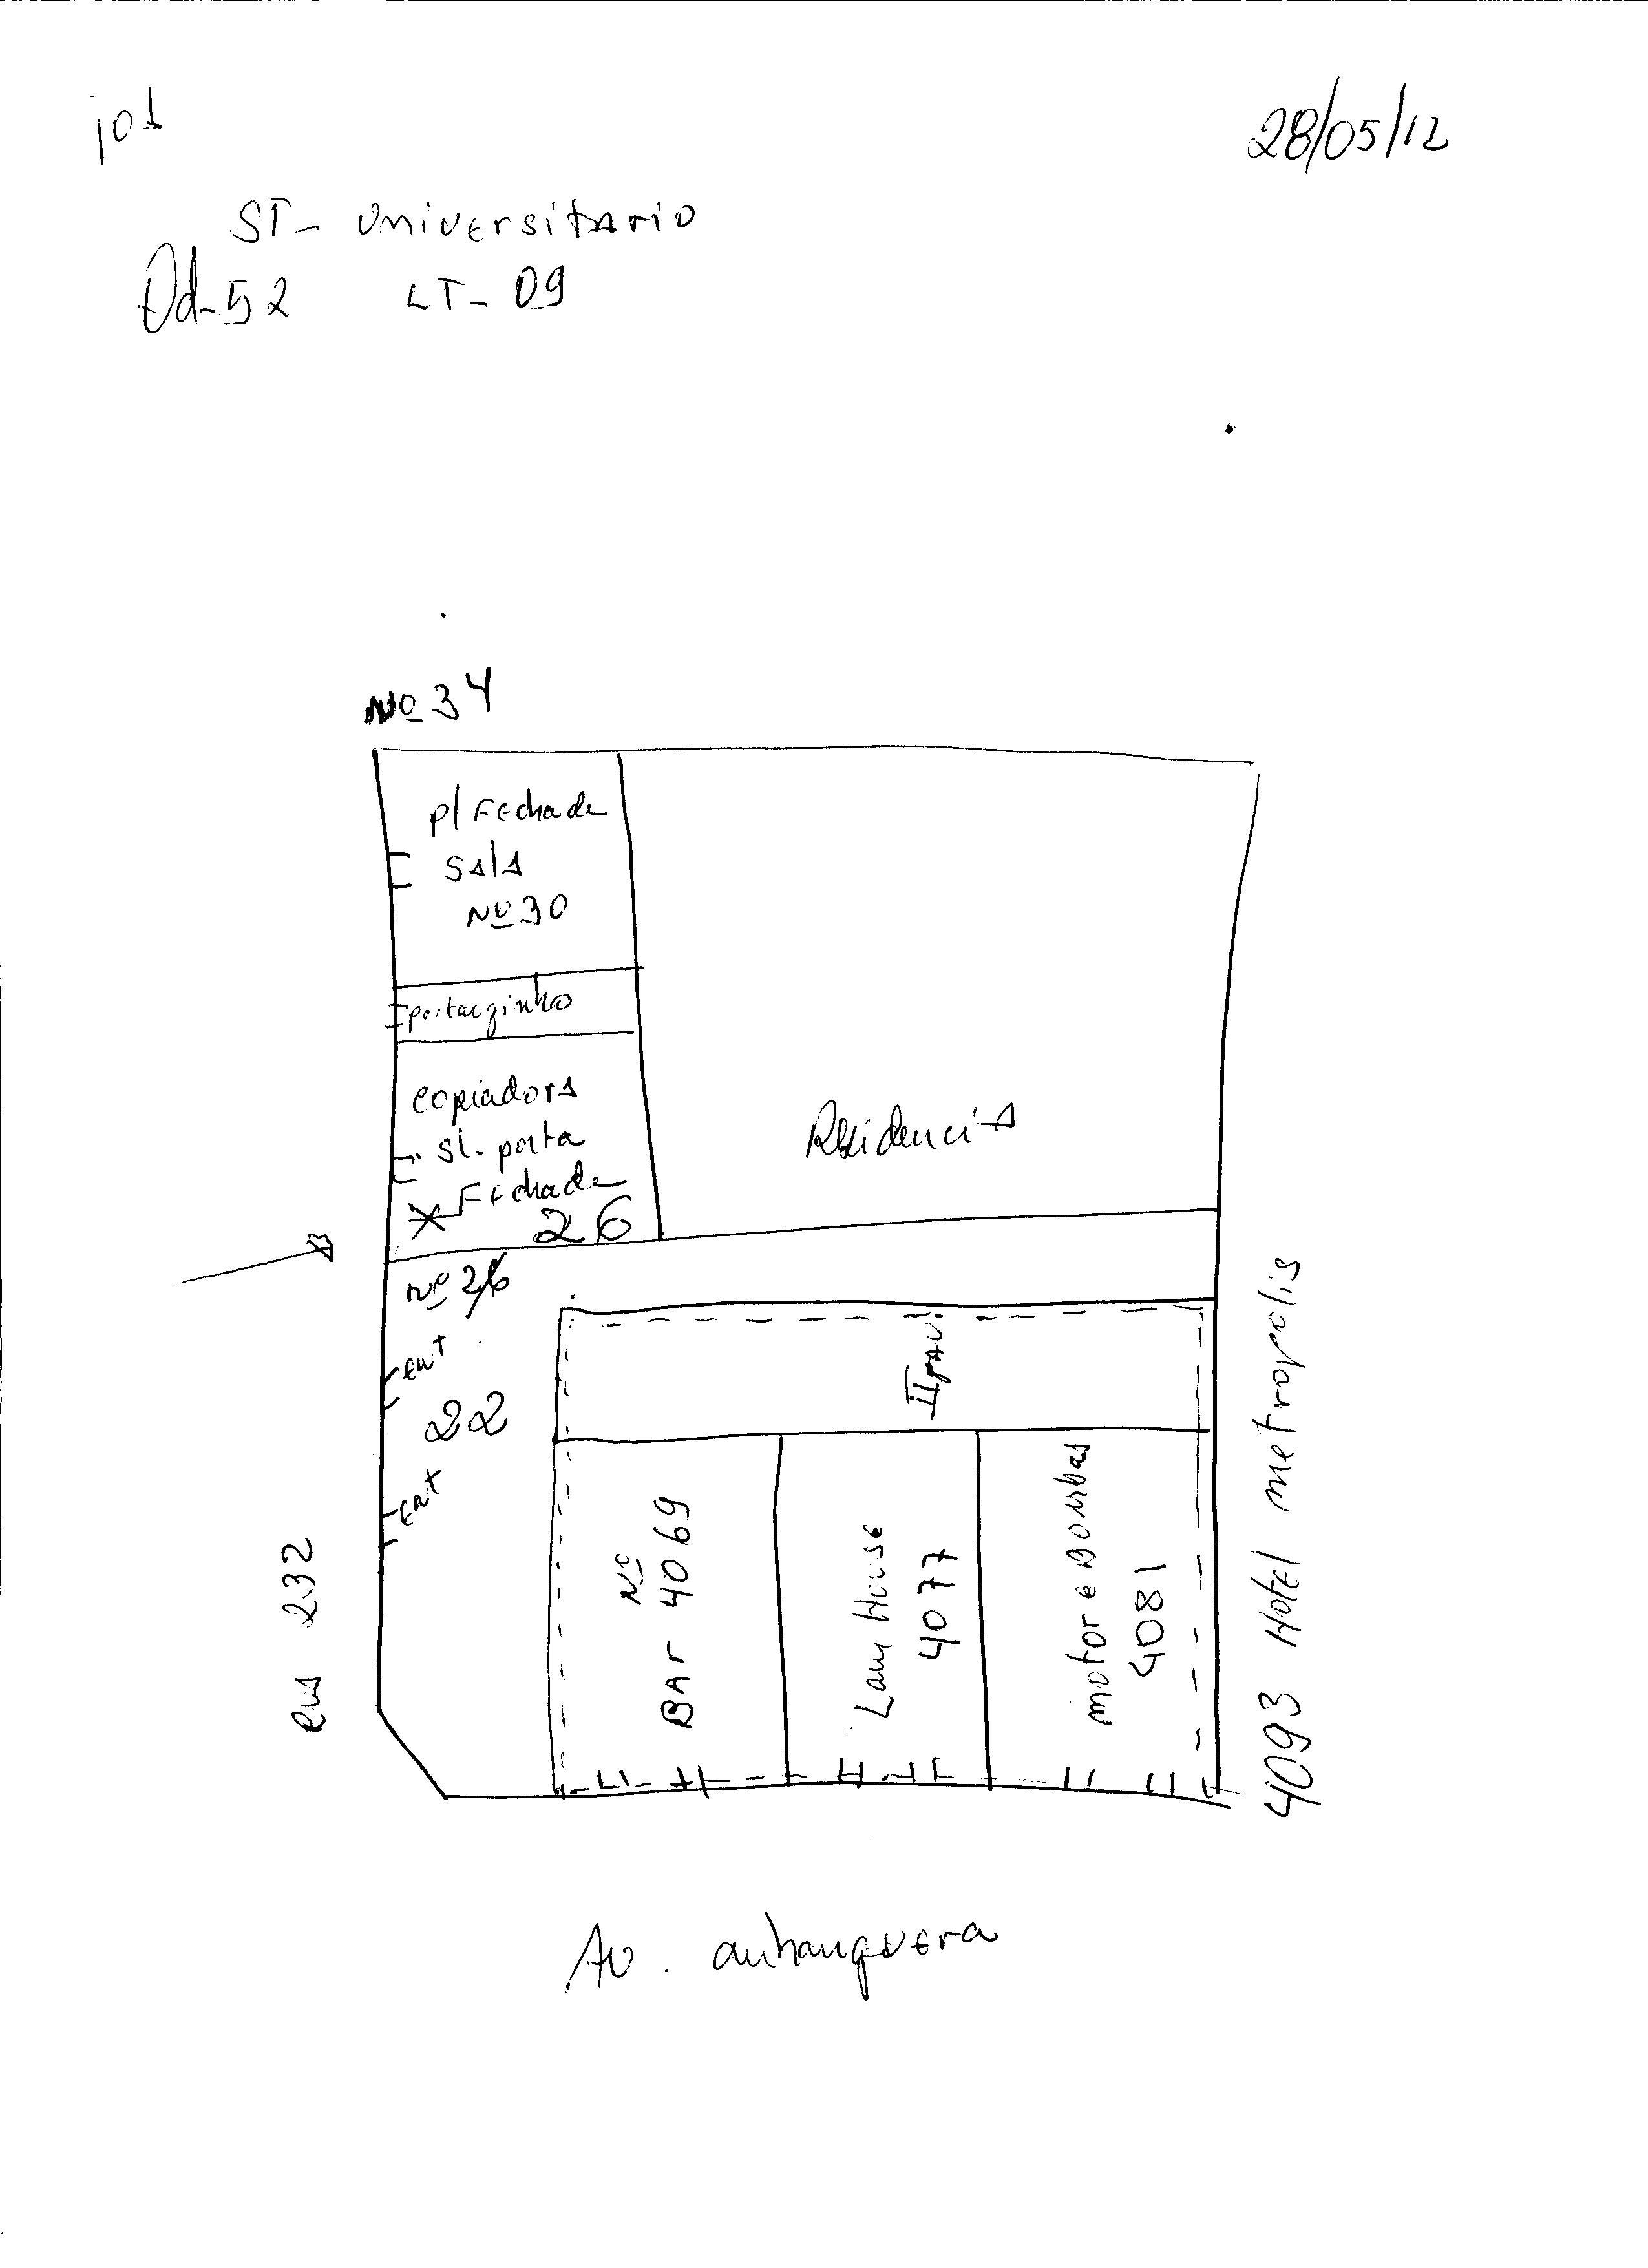 101
28/05/12
ST- Universitario
Qd-52 LT-09
Nº 34
p/ Fechada
sala
Nº 30
portaozinho
copiadora
sl. porta
Fechada
26
Nº 26
ent
22
ent
II pav.
Nº
Bar 4069
Lam House
4077
motor e Bombas
4081
Rua 232
Residencia
4093 Hotel metropolis
Av. anhanguera